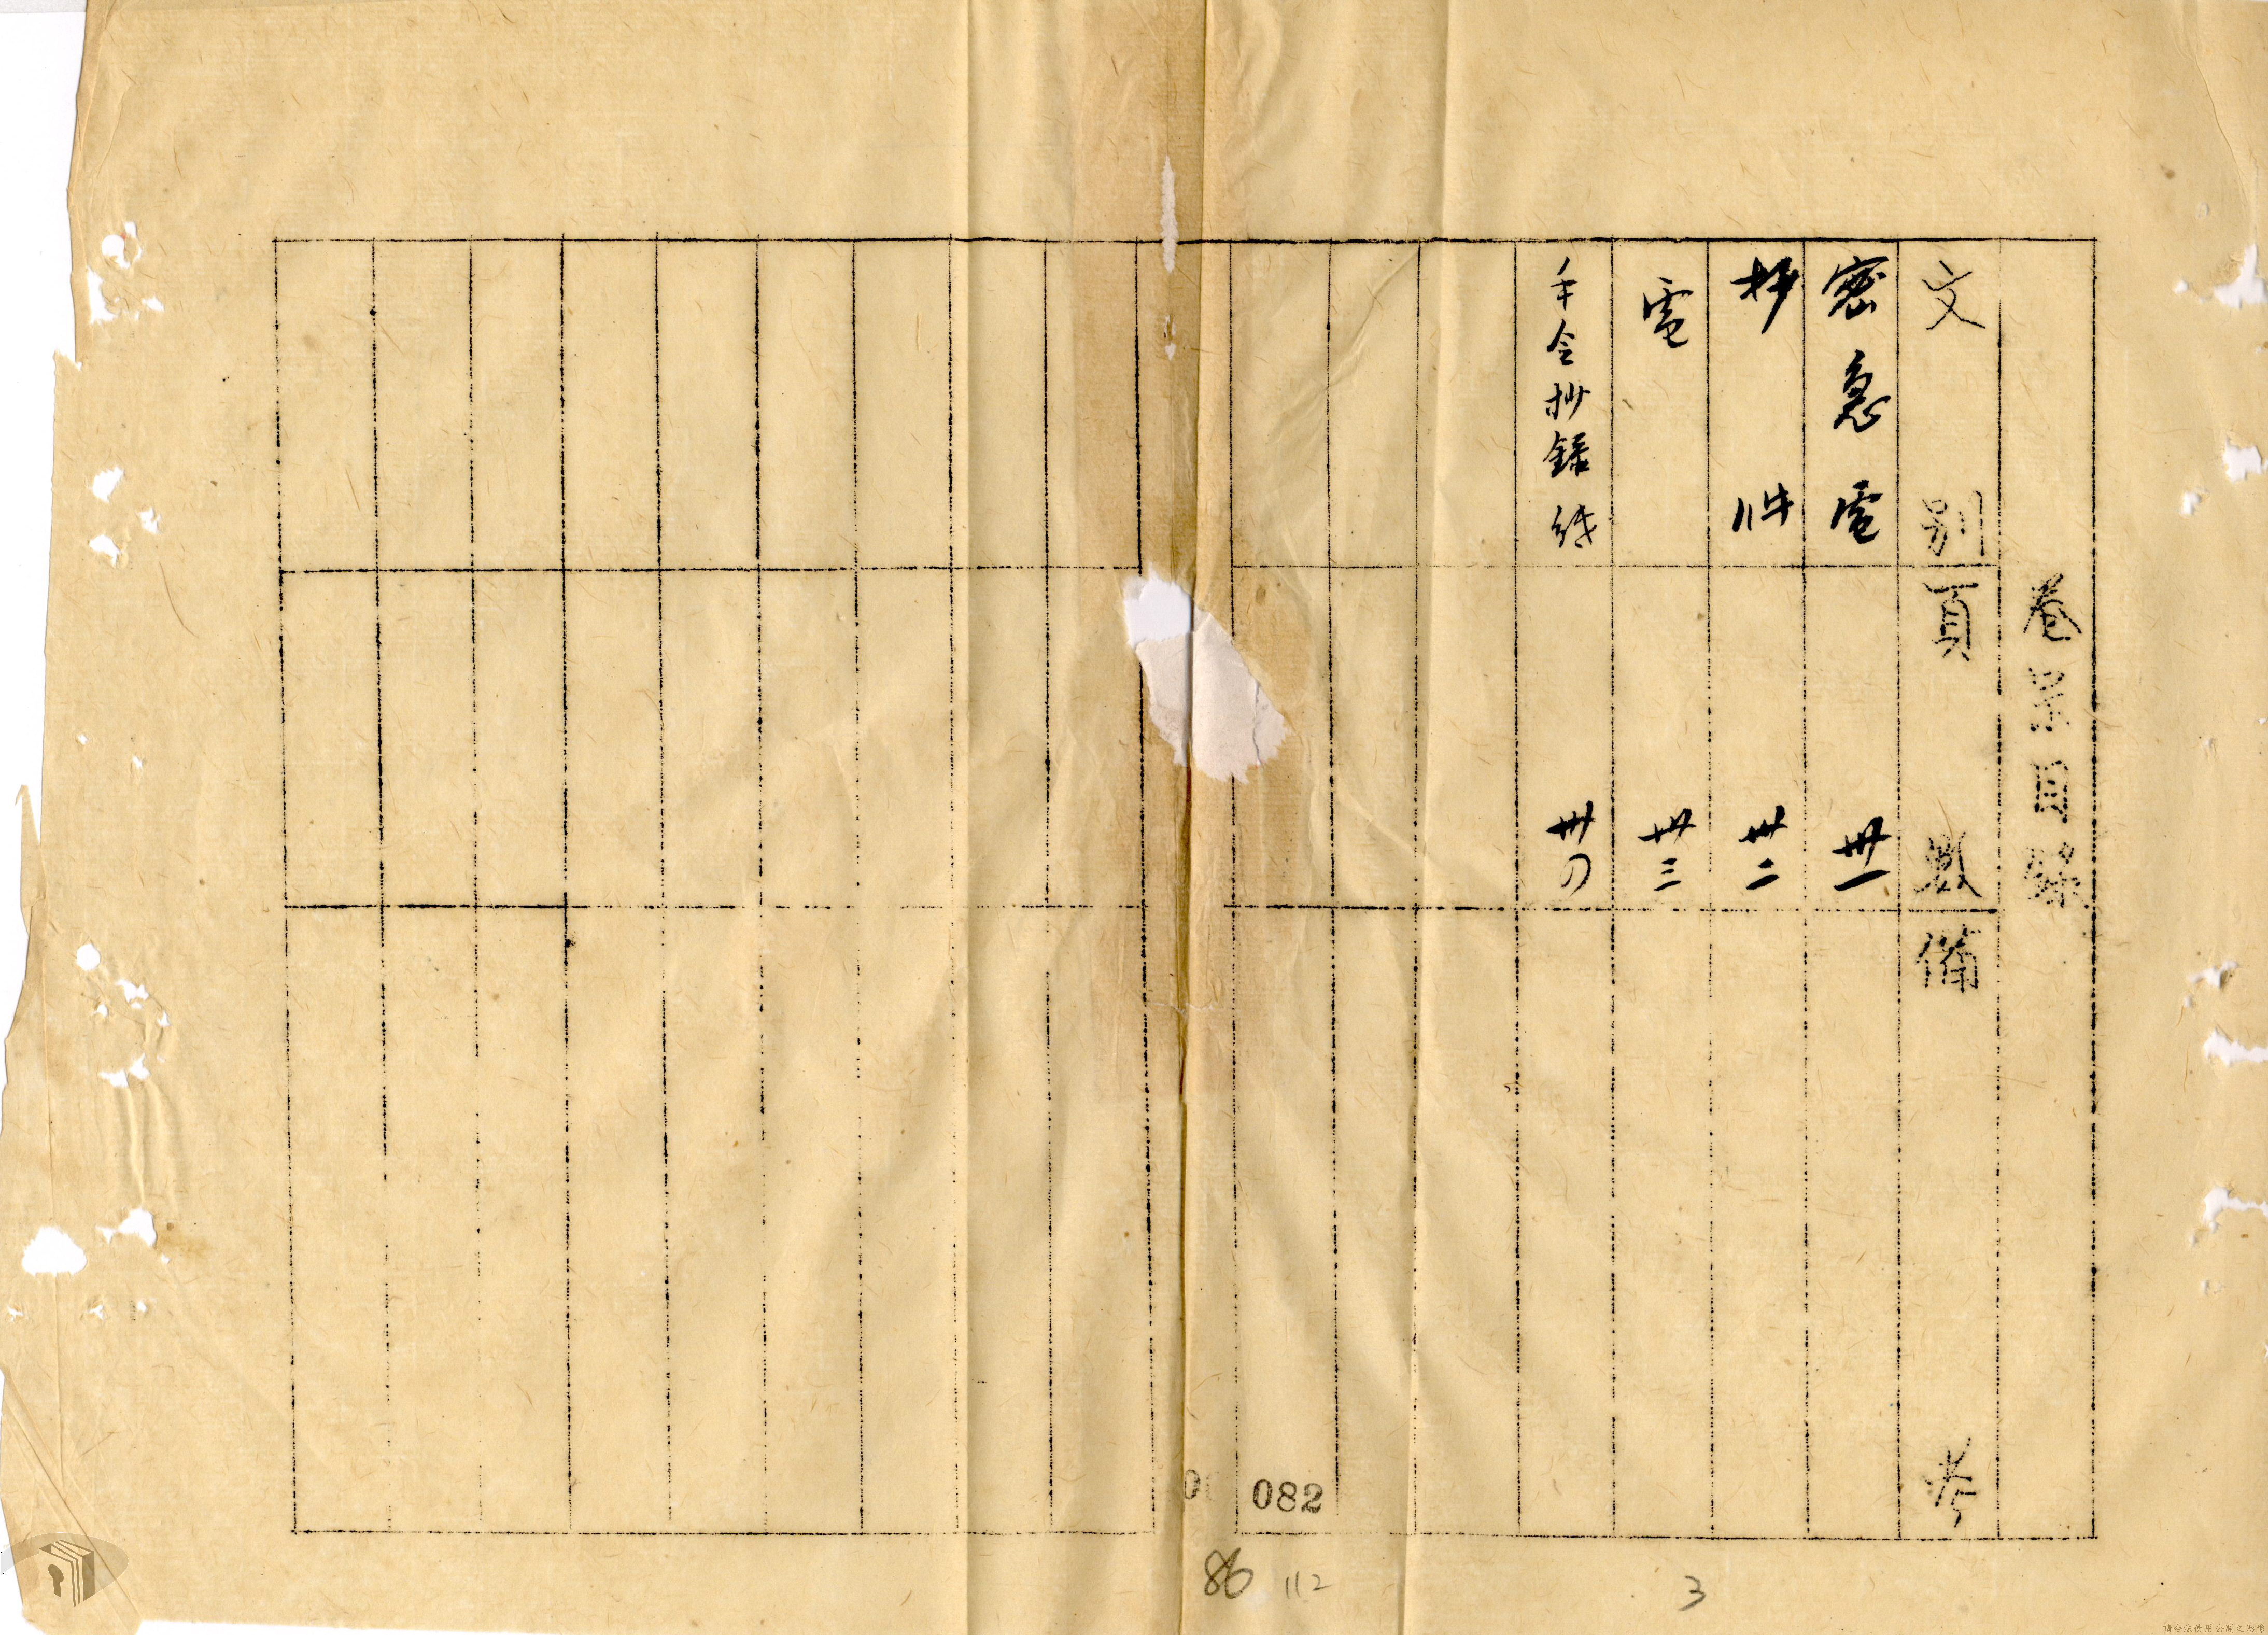 卷宗目錄
文別 頁數 備考
密急電 卅一
抄件 卅二
電 卅三
手令抄錄紙 卅
082
86
112
3
請合法使用公開之影像